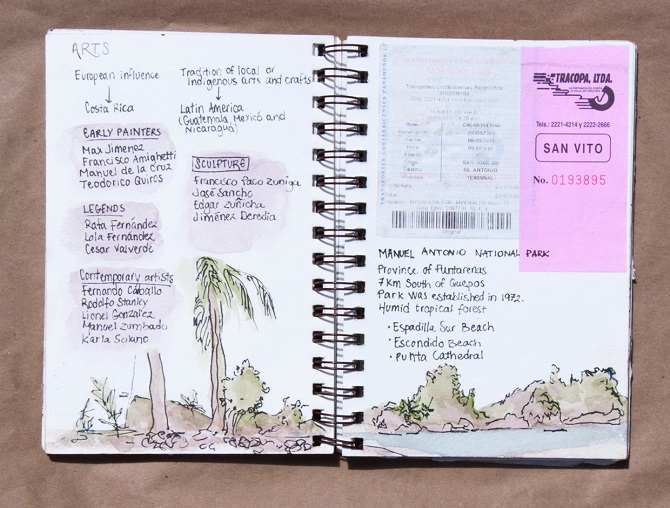 ARTS
European influence
Costa Rica
EARLY PAINTERS
Max Jimenez
Francisco Amighetti
Manuel de la Cruz
Teodorico Quiros
LEGENDS
Rafa Fernández
Lola Fernández
Cesar Valverde
Contemporary artists
Fernando Carballo
Rodolfo Stanley
Lionel González
Manuel Zumbado
Karla Solano
Tradition of local or
Indigenous arts and crafts
Latin America
(Guatemala, Mexico and
Nicaragua)
SCULPTURE
Francisco Paco Zuniga
José Sancho
Edgar Zuñicha
Jiménez Deredia
TERMINAL
TRACOPA, LTDA.
Tels.: 2221-4214 y 2222-2666
SAN VITO
No. 0193895
MANUEL ANTONIO NATIONAL PARK
Province of Puntarenas
7 km South of Quepos
Park was established in 1972.
Humid tropical forest
• Espadilla Sur Beach
• Escondido Beach
• Punta Cathedral